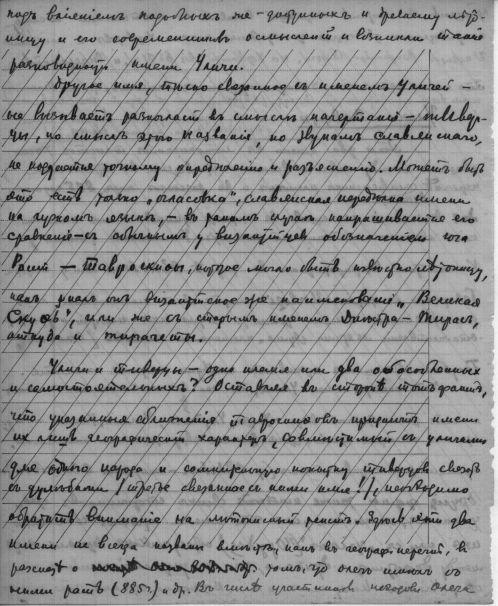 подъ вліяніемъ подобныхъ же - доступныхъ и древнему лѣто-
писцу и его современникамъ осмысленій и возникли такія
разновидности имени Уличи.
Другое имя, тѣсно связанное съ именемъ Уличей -
не вызываетъ разногласій въ смыслѣ начертанія - Тивер-
цы, но смыслъ этого названія, по звукамъ славянскаго,
не поддается точному опредѣленію и разъясненію. Можетъ быть
это есть только „огласовка", славянская передѣлка имени
на чужомъ языкѣ, - въ такомъ случаѣ напрашивается его
сравненіе съ обычнымъ у византійцевъ обозначеніемъ юга
Россіи - Тавроскиѳы, которое могло быть извѣстно лѣтописцу,
какъ зналъ онъ византійское же наименованіе „Великая
Скуѳь", или же съ старымъ именемъ Днѣстра - Тирасъ,
откуда и тирагеты.
Уличи и тиверцы - одно племя или два обособленныхъ
и самостоятельныхъ? Оставляя въ сторонѣ тотъ фактъ,
что указанныя сближенія тавроскиѳовъ придаютъ имени
ихъ лишь географическій характеръ, совмѣстимый съ уличами
для одного народа и сомнительную попытку тиверцовъ связать
съ дулѣбами (третье связанное съ ними имя!), необходимо
обратить вниманіе на лѣтописный текстъ. Здѣсь эти два
имени не всегда названы вмѣстѣ, какъ въ географ. перечнѣ, въ
разсказѣ о томъ, что Олегъ имѣлъ съ
ними рать (885 г.) и др. Въ числѣ участниковъ похода Олега